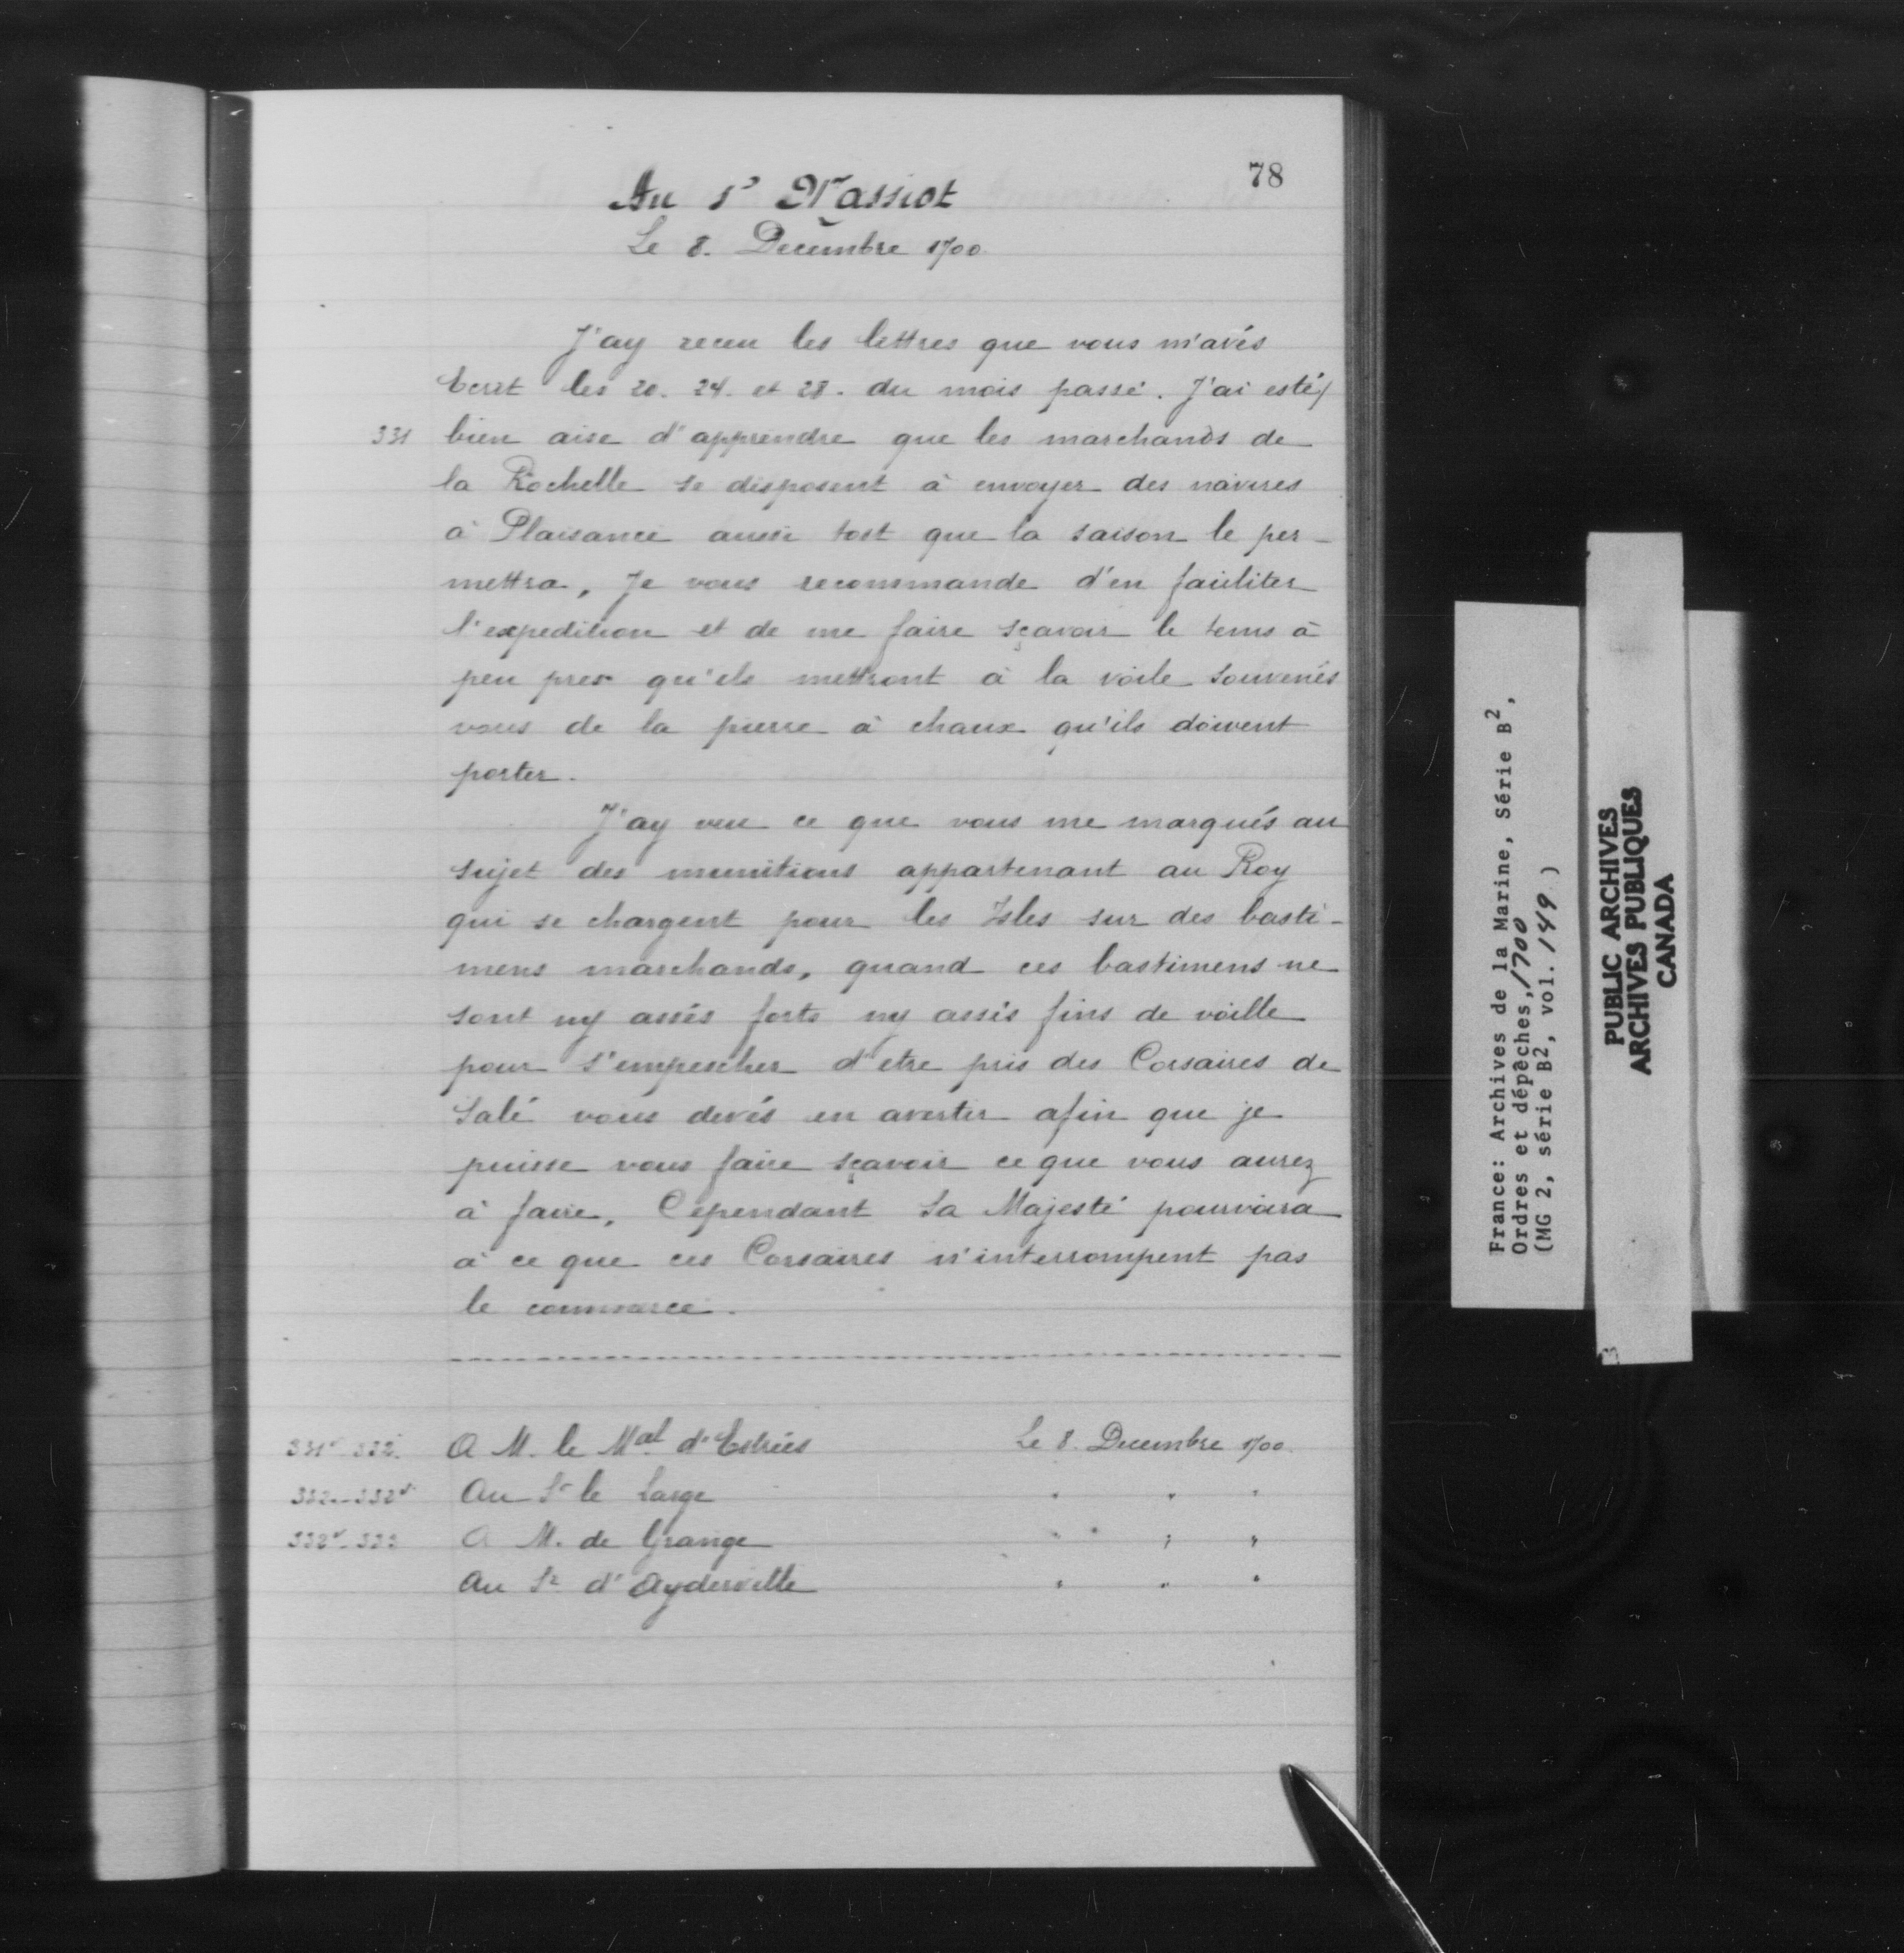 78
Au Sr Massiot
Le 8. Decembre 1700.
J'ay receu les lettres que vous m'avés
Ecrit les 20. 24. et 28. du mois passé. J'ai esté/
331 bien aise d'apprendre que les marchands de
la Rochelle se disposent à envoyer des navires
à Plaisance aussi tost que la saison le per-
mettra, Je vous recommande d'en faciliter
l'expedition et de me faire sçavoir le tems à
peu pres qu'ils mettront à la voile souvenés
vous de la pierre à chaux qu'ils doivent
porter.
J'ay veu ce que vous me marqués au
sujet des munitions appartenant au Roy
qui se chargent pour les Isles sur des basti-
mens marchands, quand ces bastimens ne
sont ny assés forts ny assés fins de voille
pour s'empescher d'etre pris des Corsaires de
Salé vous devés en avertir afin que je
puisse vous faire sçavoir ce que vous aurez
à faire, Cependant Sa Majesté pourvoira
à ce que ces Corsaires n'interrompent pas
le commerce.
331v-332. A M. le Mal d'Estrées Le 8. Decembre 1700.
332-332v Au Sr le Large " " "
332v-333 A M. de Grange " " "
Au Sr d'Ayderville " " "
France: Archives de la Marine, Série B2,
Ordres et dépêches, 1700
(MG 2, série B2, vol. 149)
PUBLIC ARCHIVES
ARCHIVES PUBLIQUES
CANADA